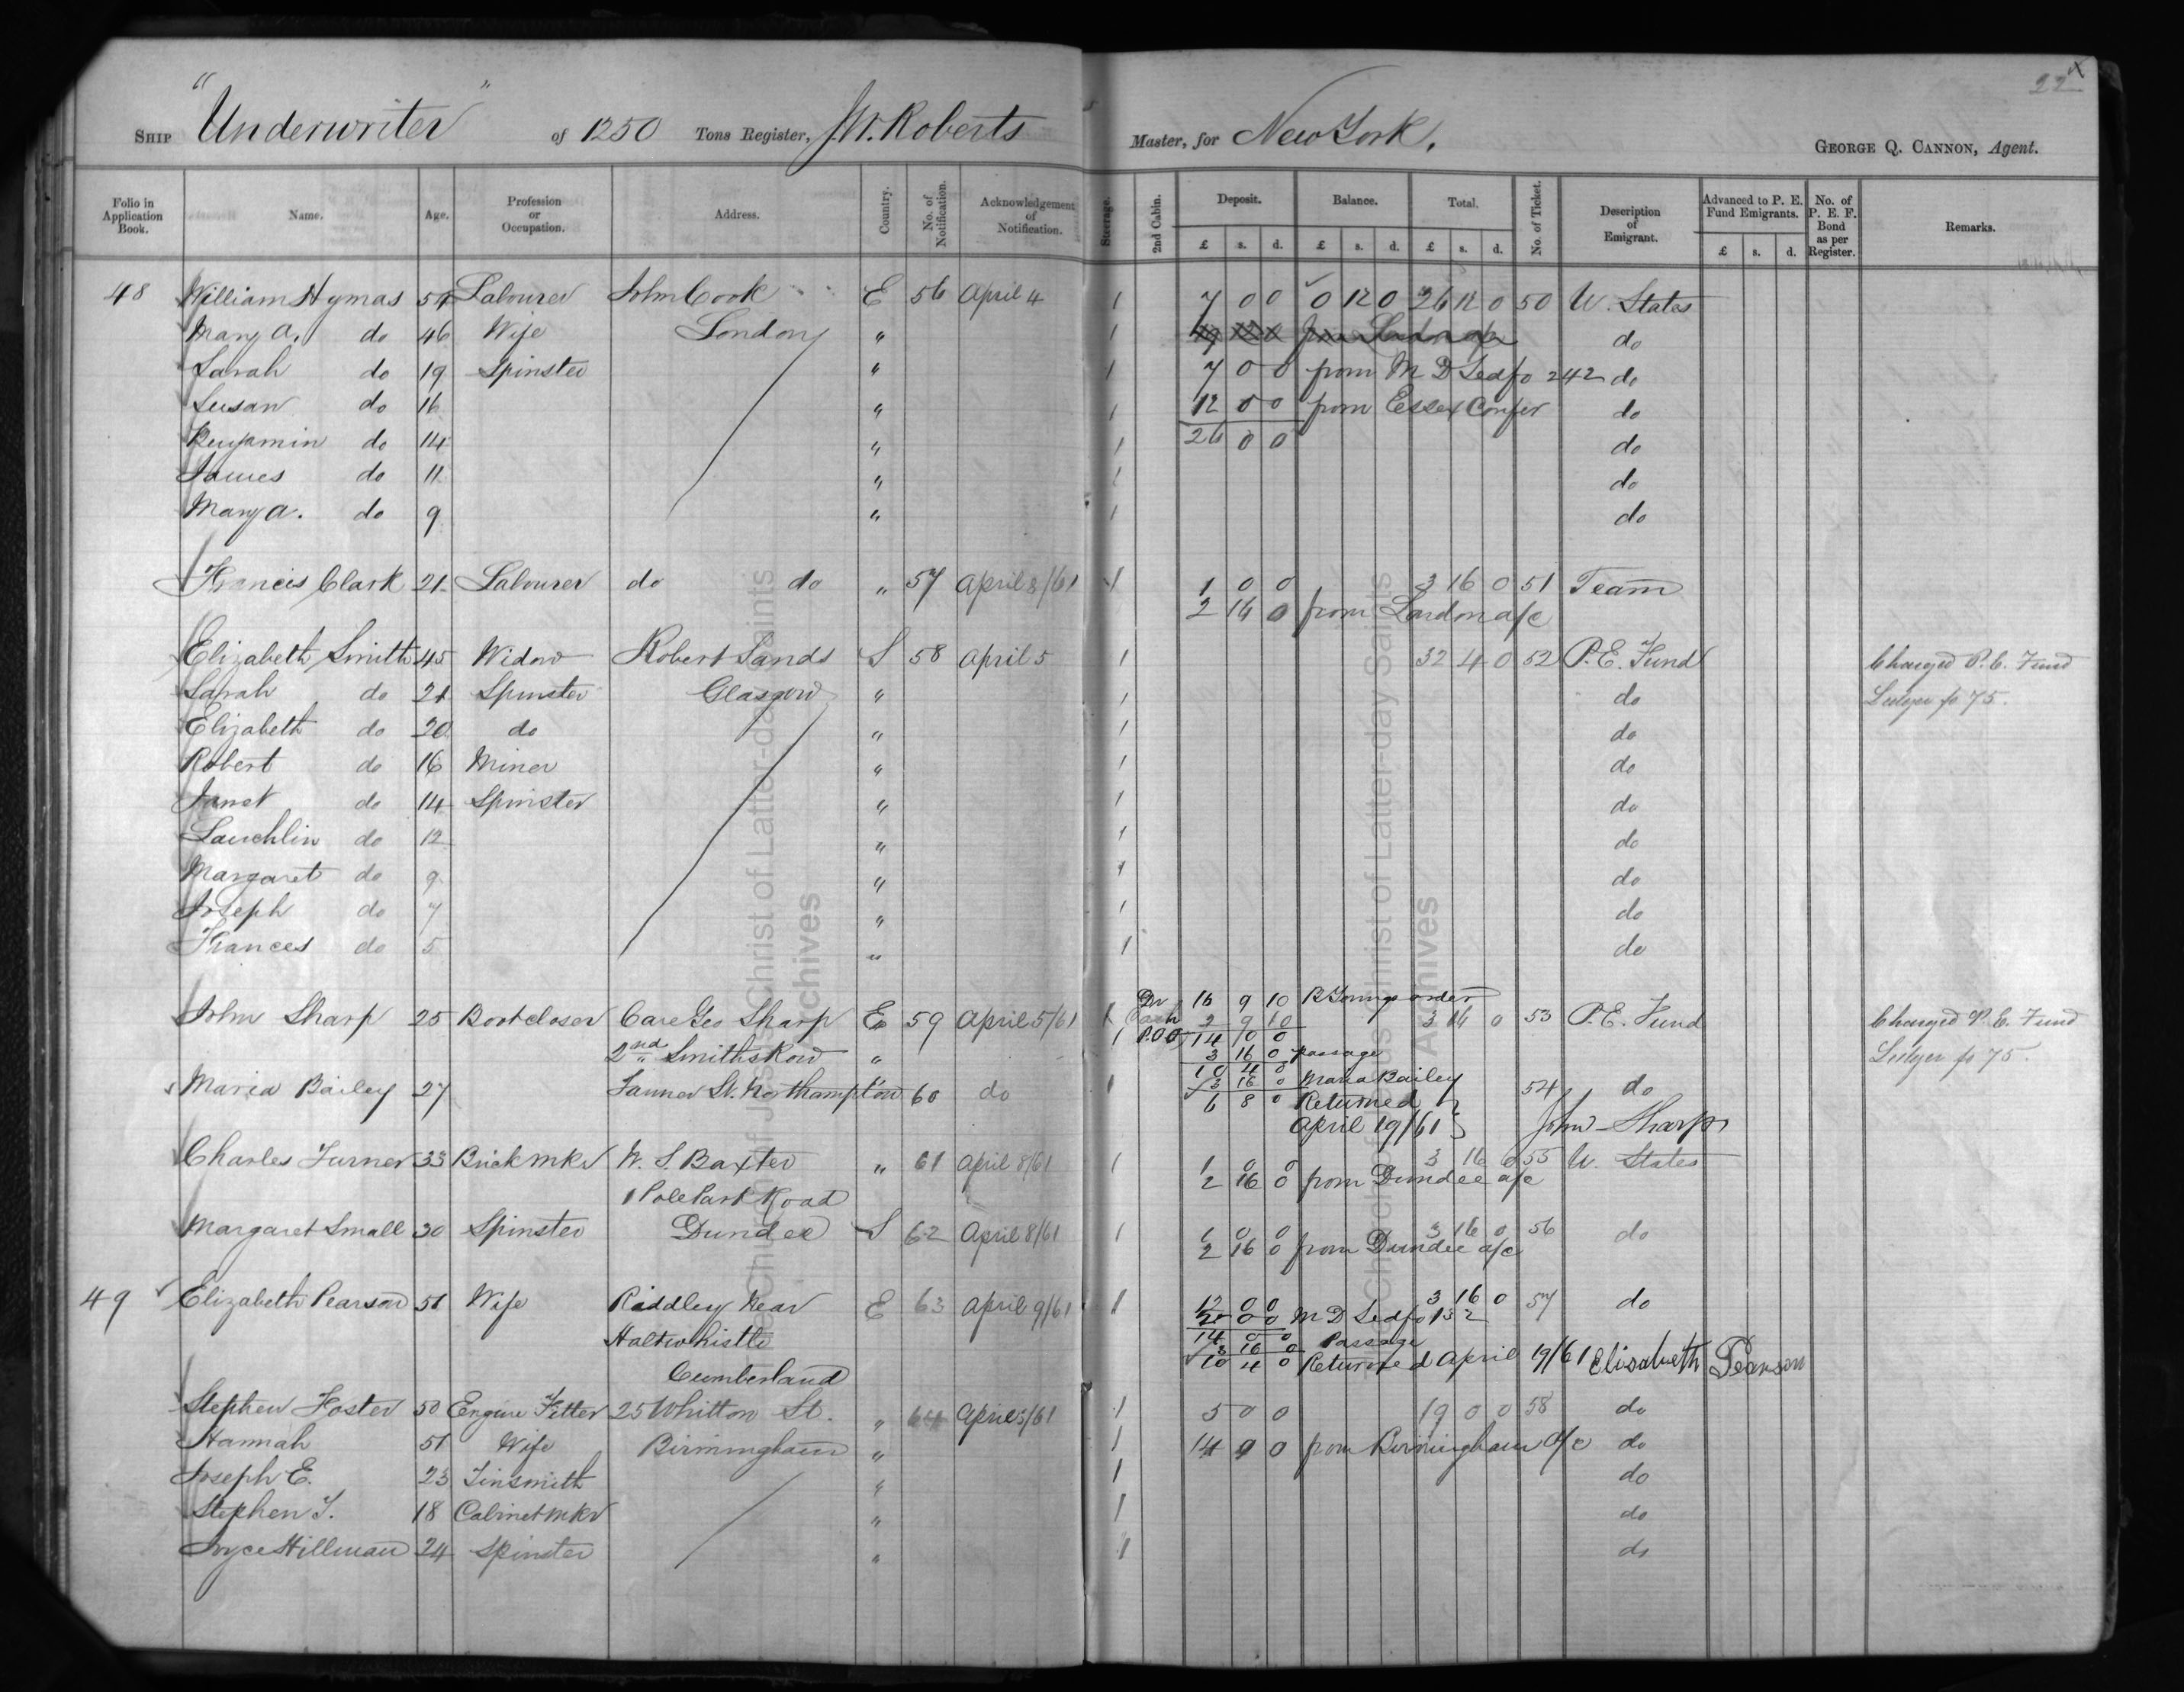 "Underwriter"
SHIP Underwriter of 1250 Tons Register, J.W. Roberts Master, for New York.
GEORGE Q. CANNON, Agent.
Folio in Application Book. Name. Age. Profession or Occupation. Address. Country. No. of Notification. Acknowledgement of Notification. Steerage. 2nd Cabin. Deposit. Balance. Total. No. of Ticket. Description of Emigrant. Advanced to P. E. Fund Emigrants. No. of P. E. F. Bond as per Register. Remarks.
£ s. d. £ s. d. £ s. d. £ s. d.
48 William Hymas 51 Labourer John Cook E 56 April 4 1 7 0 0 0 12 0 26 12 0 50 U. States
Mary A. do 46 Wife London " 1 do
Sarah do 19 Spinster " 1 7 0 0 from M D Led fo 242 do
Susan do 16 " 1 12 0 0 from Essex Confer do
Benjamin do 14 " 1 26 0 0 do
James do 11 " 1 do
Mary A. do 9 " 1 do
Francis Clark 21 Labourer do do " 57 April 8/61 1 1 0 0 3 16 0 51 Team
2 16 0 from London a/c
Elizabeth Smith 45 Widow Robert Sands S 58 April 5 1 32 4 0 52 P.E. Fund Charged P.E. Fund
Sarah do 21 Spinster Glasgow " 1 do Ledger fo 75.
Elizabeth do 20 do " 1 do
Robert do 16 Miner " 1 do
Janet do 14 Spinster " 1 do
Lauchlin do 12 " 1 do
Margaret do 9 " 1 do
Joseph do 7 " 1 do
Frances do 5 " 1 do
16 9 10 B Youngs order
John Sharp 25 Bootcloser Care Geo Sharp E 59 April 5/61 1 Cash 2 9 10 3 16 0 53 P.E. Fund Charged P.E. Fund
1 P.O.O 14 0 0
2nd Smiths Row " 3 16 0 passage Ledger fo 75.
10 4 0
Maria Bailey 27 Tanner St. Northampton " 60 do 1 3 16 0 Maria Bailey 54 do
6 8 0 Returned
April 19/61 John Sharp
Charles Turner 33 Brickmkr W. S. Baxter " 61 April 8/61 1 1 0 0 3 16 0 55 U. States
1 Pole Park Road 2 16 0 from Dundee a/c
Margaret Small 30 Spinster Dundee S 62 April 8/61 1 1 0 0 3 16 0 56 do
2 16 0 from Dundee a/c
49 Elizabeth Pearson 51 Wife Riddley Rear E 63 April 9/61 1 12 0 0 3 16 0 57 do
2 0 0 M D Led fo 132
Haltwhistle 14 0 0 Passage
3 16 0
Cumberland 10 4 0 Returned April 19/61 Elisabeth Pearson
Stephen Foster 50 Engine Fitter 25 Whitton St. " 64 April 5/61 1 5 0 0 19 0 0 58 do
Hannah 51 Wife Birmingham " 1 14 0 0 from Birmingham a/c do
Joseph E. 23 Tinsmith " 1 do
Stephen T. 18 Cabinetmkr " 1 do
Joyce Hillman 24 Spinster " 1 do